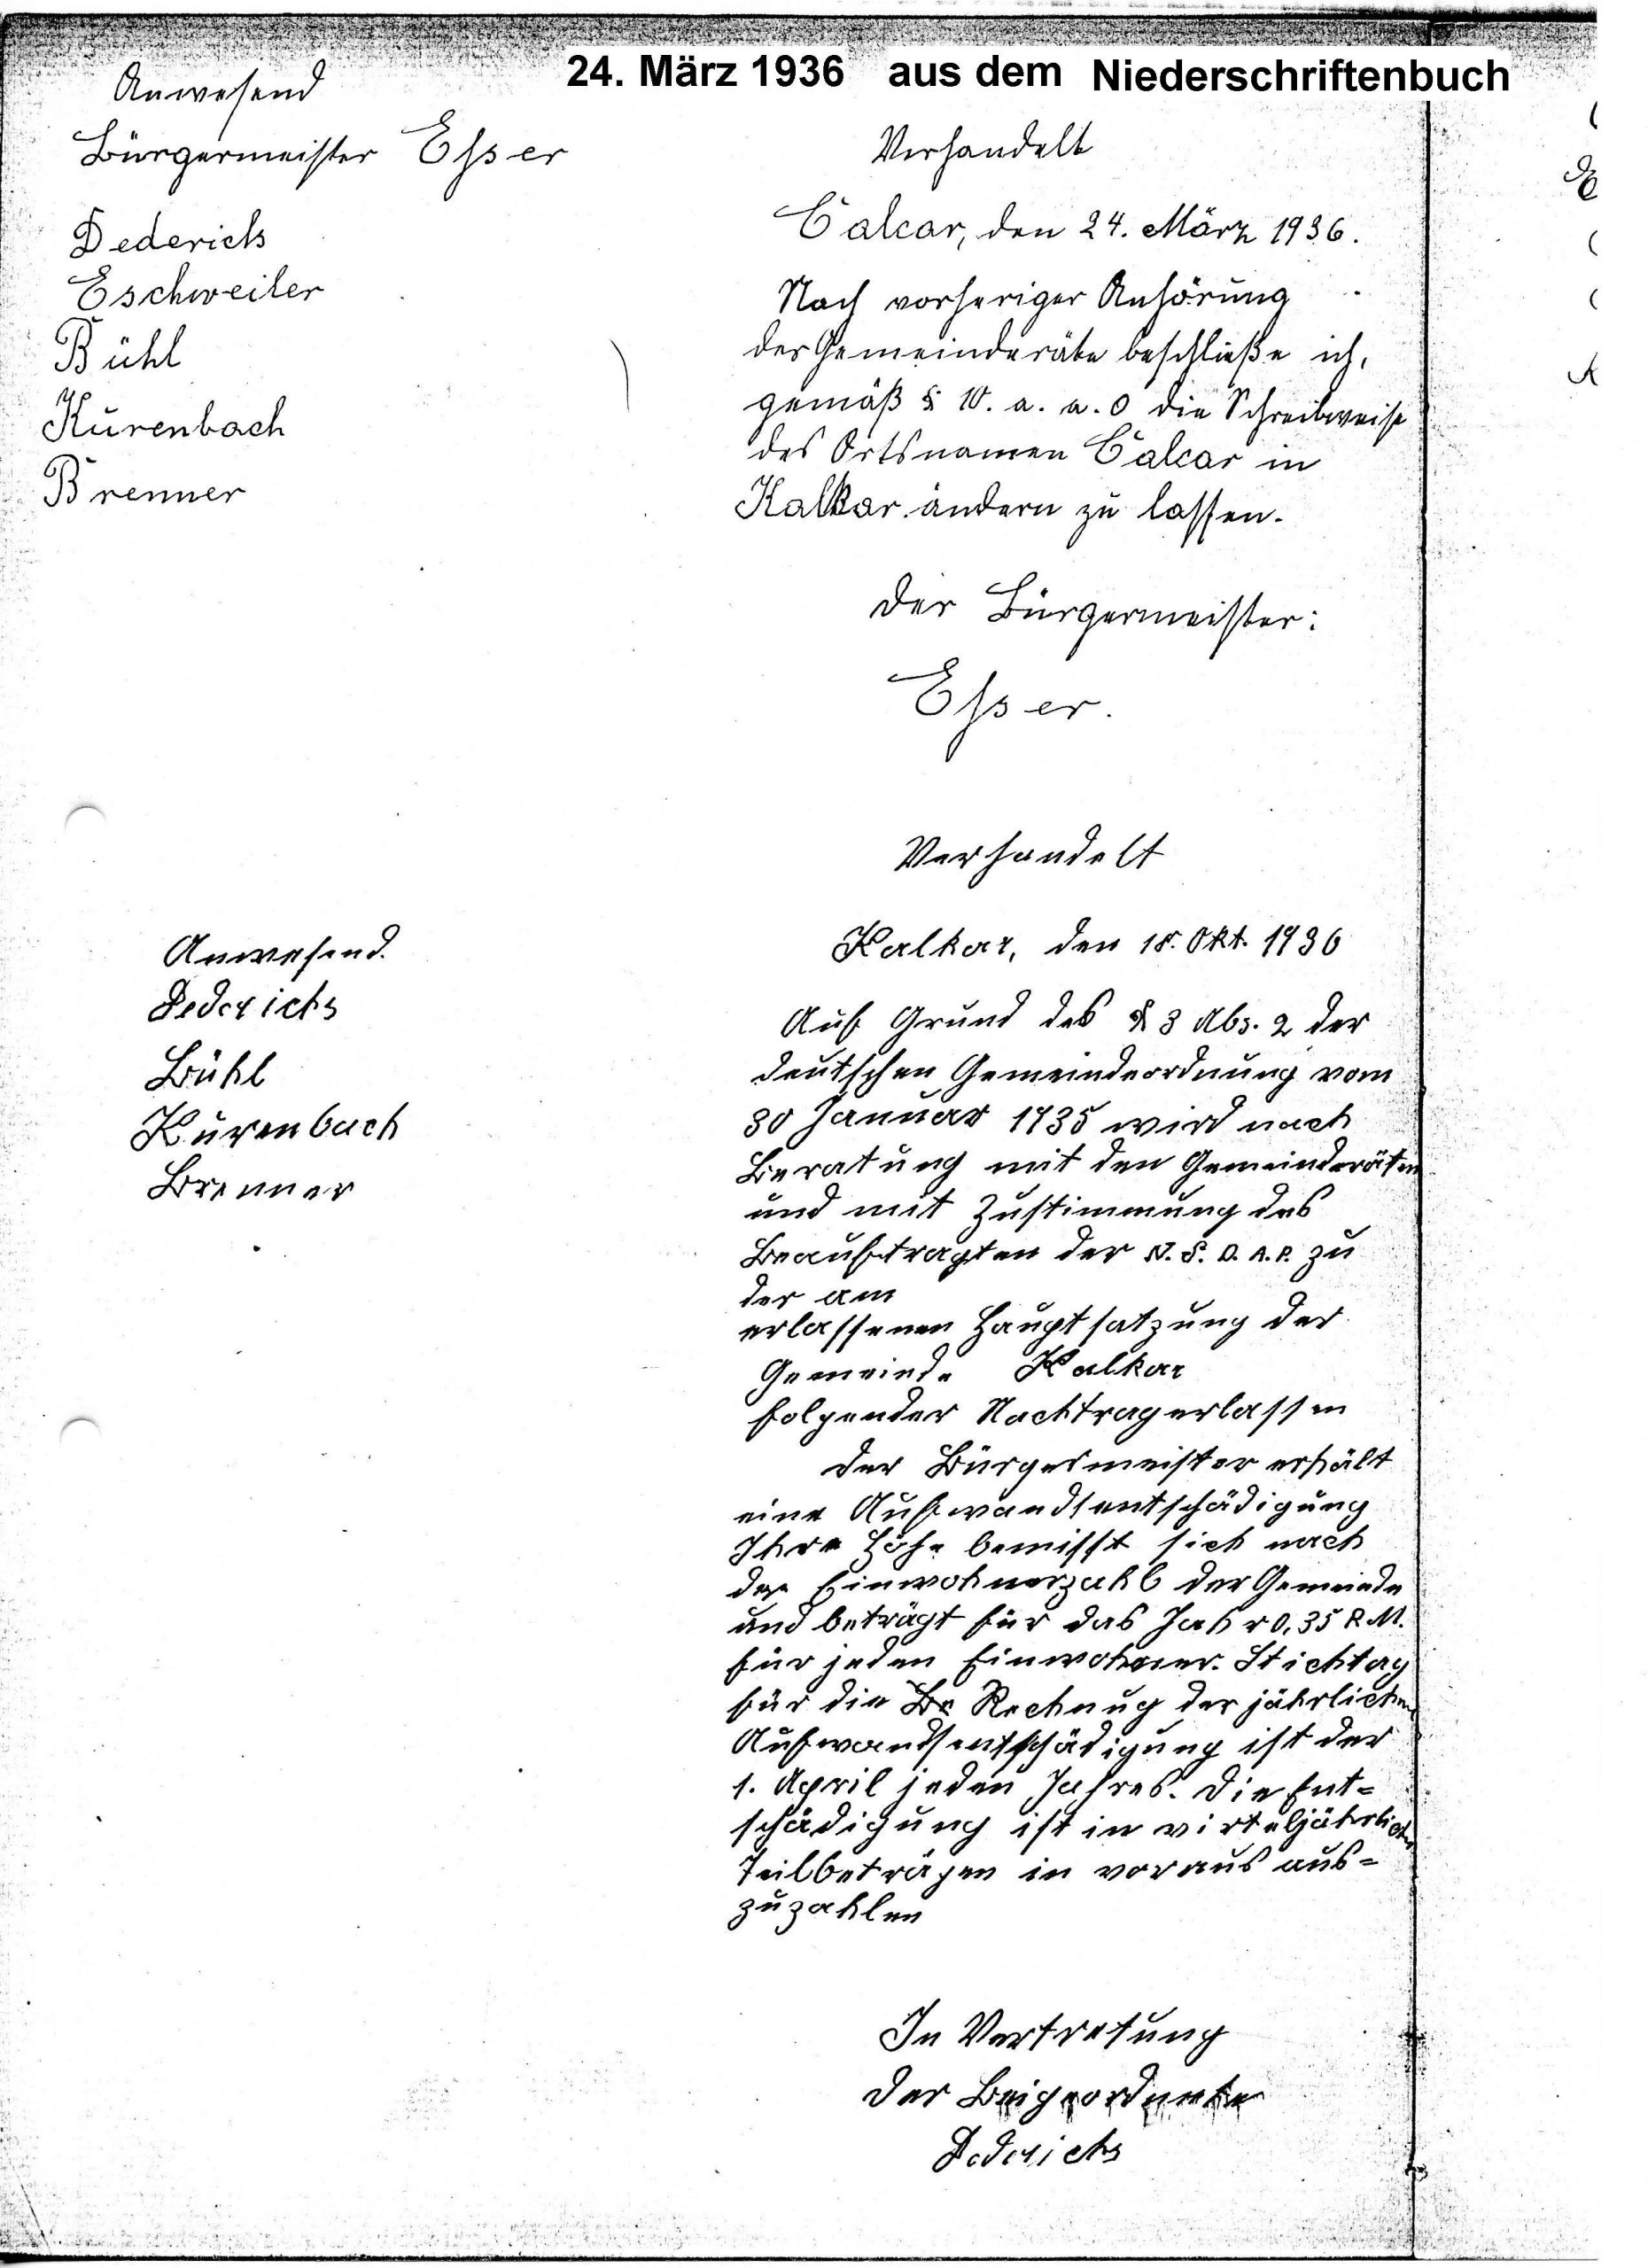 24. März 1936 aus dem Niederschriftenbuch
Anwesend
Bürgermeister Esser
Dederichs
Eschweiler
Bühl
Kurenbach
Brenner
Verhandelt
Calcar, den 24. März 1936.
Nach vorheriger Anhörung
der Gemeinderäte beschließe ich,
gemäß § 10. a. a. O die Schreibweise
des Ortsnamen Calcar in
Kalkar ändern zu lassen.
Der Bürgermeister:
Esser.
Verhandelt
Kalkar, den 18. Okt. 1936
Anwesend.
Dederichs
Bühl
Kurenbach
Brenner
Auf Grund des § 3 Abs. 2 der
deutschen Gemeindeordnung vom
30 Januar 1935 wird nach
Beratung mit den Gemeinderäten
und mit Zustimmung des
Beauftragten der N.S.D.A.P. zu
der am
erlassenen Hauptsatzung der
Gemeinde Kalkar
folgender Nachtrag erlassen
Der Bürgermeister erhält
eine Aufwandsentschädigung
Ihre Höhe bemisst sich nach
der Einwohnerzahl der Gemeinde
und beträgt für das Jahr 0,35 R.M.
für jeden Einwohner. Stichtag
für die Be Rechnug der jährlichen
Aufwandsentschädigung ist der
1. April jeden Jahres. Die Ent=
schädigung ist in virteljährlichen
Teilbeträgen in voraus aus=
zuzahlen
In Vertretung
Der Beigeordnete
Dederichs